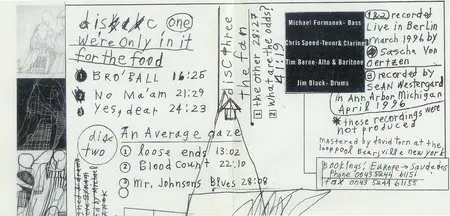 disk
one
we're only in it
for the food
1 BRO'BALL 16:25
2 No Ma'am 21:29
3 Yes, dear 24:23
disc
two
An Average gaze
1 loose ends 13:02
2 Blood count 22:10
3 Mr. Johnsons Blues 28:08
disc three
the fan
1 the other 28:27
2 what are the odds?
41:19
Michael Formanek- Bass
Chris Speed-Tenor& Clarinet
Tim Berne-Alto & Baritone
Jim Black- Drums
1&2 recorded
Live in Berlin
march 1996 by
Sascha Von
Oertzen
3 recorded by
SEAN Westergard
in Ann Arbor Michigan
April 1996
* these recordings were
not produced
mastered by david Torn at the
looppool Bearsville new york
Bookings: Europe → Saudades
Phone 0043 5244
fax 0043 5244 61155